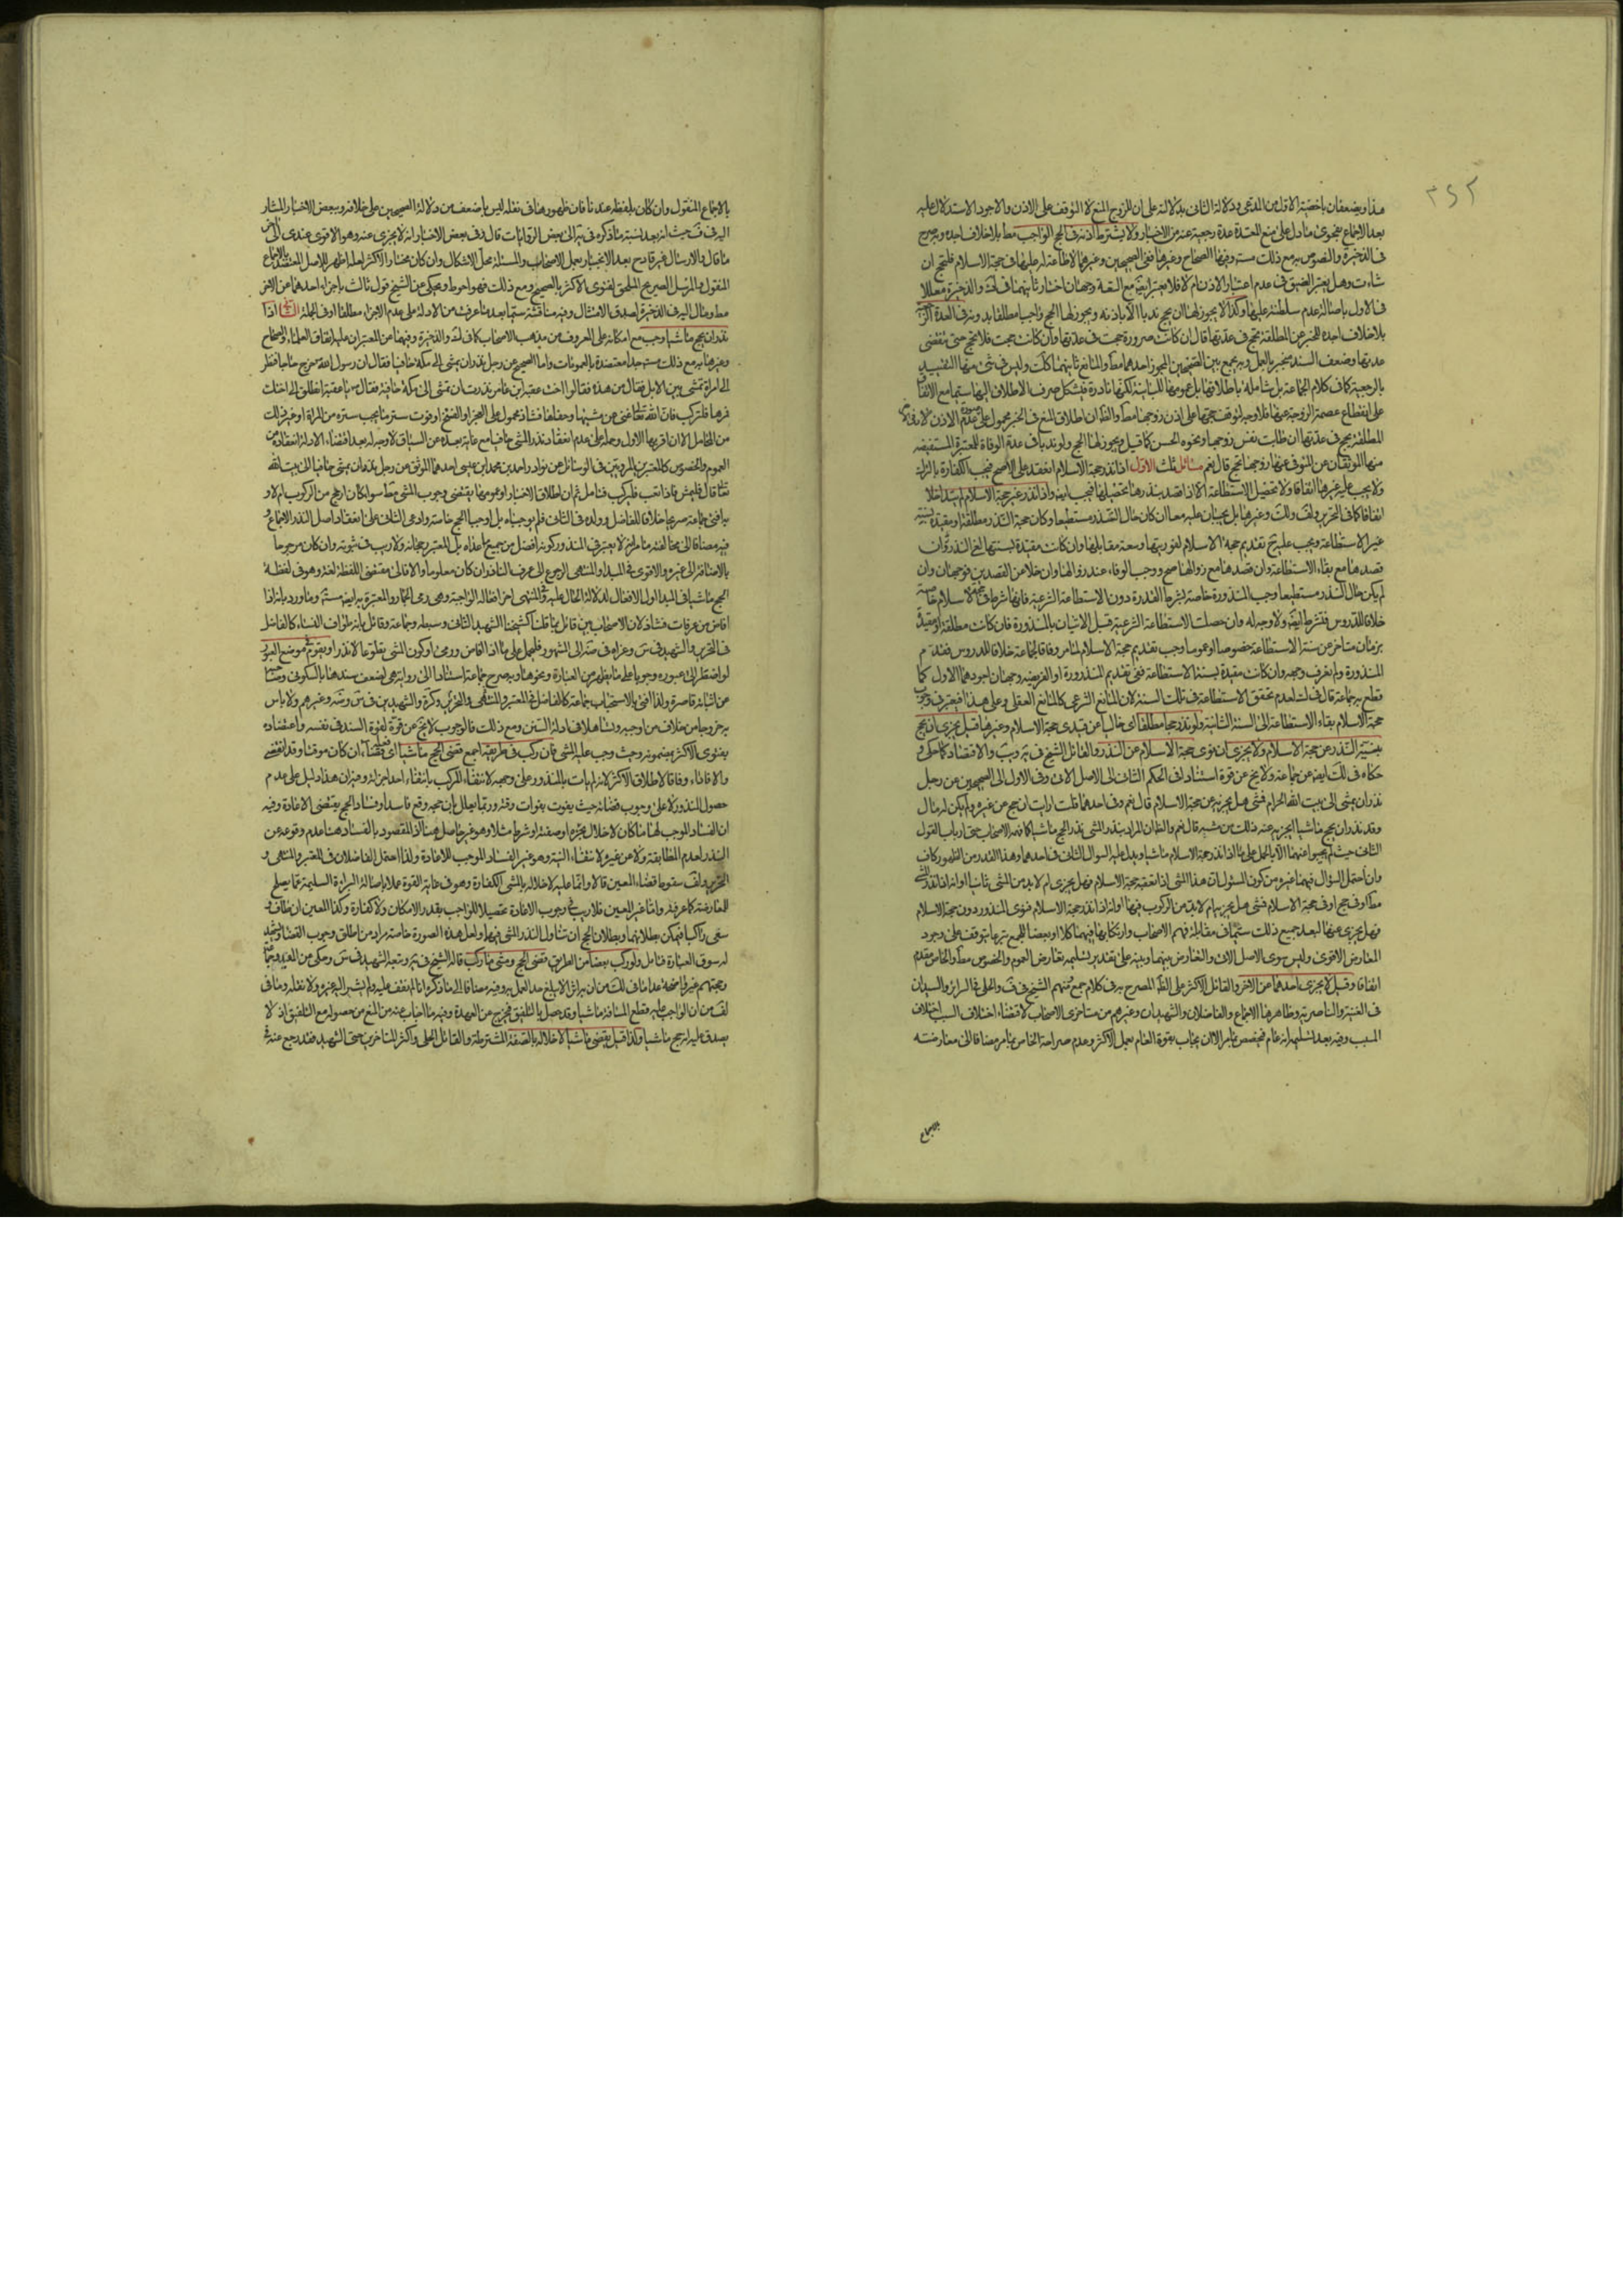 ٣٤٢
هذا ويضعفان باخصية الاول من المدعى ودلالة الثاني بدلالته على ان للزوج المنع لا التوقف على الاذن والاجود الاستدلال عليه
بعد الاجماع بفحوى ما دل على منع المعتدة عدة رجعية عنه من الاخبار ولا يشترط اذنه في الحج الواجب مط بلا خلاف اجده وبه صرح
في الذخيرة والنصوص به مع ذلك مستفيضة وفيها الصحاح وغيرها ففي الصحيحين وغيرهما لا طاعة له عليها في حجة الاسلام فلتحج ان
شاءت وهل يعتبر الضيق في عدم اعتبار الاذن ام لا فلا يعتبر ايض مع السعة وجهان اختار ثانيهما في ك والذخيرة
في الاول باصالة عدم سلطنته عليها وكذا لا يجوز لها ان تحج ندبا الا باذنه ويجوز لها الحج واجبا مطلقا به وبه في العدة الرجعية
بلا خلاف اجده للخبر عن المطلقة تحج في عدتها قال ان كانت صرورة حجت في عدتها وان كانت حجت فلا تحج حتى تقضى
عدتها وضعف السند منجبر بالعمل وبه يجمع بين الصحيحين المجوز احدهما مط والمانع ثانيهما كذلك وليس في شئ منها التقييد
بالرجعية كما في كلام الجماعة بل شاملة باطلاقها بل عمومها للباينة لكنها نادرة فيشكل صرف الاطلاق اليها سيما مع الاتفاق
على انقطاع عصمة الزوجة عنها فلا وجه لتوقف حجها على اذن زوجها مط والظ ان اطلاق المنع في الخبر محمول على عدم الاذن
المطلقة تحج في عدتها ان طابت نفس زوجها ونحوه الحسن كما قيل ويجوز لها الحج ولو ندبا في عدة الوفاة للمعتبرة المستفيضة
منها الموثقان عن المتوفى عنها زوجها تحج قال نعم مسائل ثلث الاولى اذا نذر حجة الاسلام انعقد على الاصح فيجب الكفارة بالترك
ولا يجب عليه غيرها اتفاقا ولا تحصيل الاستطاعة الا اذا قصد بنذرها تحصيلها فيجب ايض واذا نذر غير حجة الاسلام لم يتداخلا
اتفاقا كما في التحرير ولف وك وغيرها بل يجبان عليه معا ان كان حال النذر مستطيعا وكان حجة النذر مطلقة او مقيدة بسنة
غير الاستطاعة ويجب عليه ح تقديم حجة الاسلام لفوريتها وسعة مقابلها وان كانت مقيدة بسنتها لغى النذر ان
قصدها مع بقاء الاستطاعة وان قصدها مع زوالها صح ووجب الوفاء عند زوالها وان خلا عن القصدين فوجهان وان
لم يكن حال النذر مستطيعا وجب المنذورة خاصة بشرط القدرة دون الاستطاعة الشرعية فانها شرط في حجة الاسلام خاصة
خلافا للدروس فتشترط ايض ولا وجه له وان حصلت الاستطاعة الشرعية قبل الاتيان بالمنذورة فان كانت مطلقة او مقيدة
بزمان متاخر عن سنة الاستطاعة خصوصا او عموما وجب تقديم حجة الاسلام لما مر وفاقا لجماعة خلافا للدروس فقدم
المنذورة ولم نعرف وجهه وان كانت مقيدة بسنة الاستطاعة ففي تقديم المنذورة او الفريضة وجهان اجودهما الاول كما
قطع به جماعة قال في ك لعدم تحقق الاستطاعة في تلك السنة لان المانع الشرعي كالمانع العقلي وعلى هذا فيعتبر في وجوب
حجة الاسلام بقاء الاستطاعة الى السنة الثانية ولو نذر حجا مطلقا اى خاليا عن قيدى حجة الاسلام وغيرها قيل يجزى ان حج
بنية النذر عن حجة الاسلام ولا يجزى ان نوى حجة الاسلام عن النذر والقائل الشيخ في يه ويب والاقتصاد كما حكى و
حكاه في ك ايض عن جماعة ولا يخ عن قوة استنادا في الحكم الثاني الى الاصل الاتى وفي الاول الى الصحيحين عن رجل
نذر ان يمشى الى بيت الله الحرام فمشى هل يجزيه عن حجة الاسلام قال نعم وفي احدهما قلت ارايت ان حج عن غيره ولم يكن له مال
وقد نذر ان يحج ماشيا ايجزيه عنه ذلك من مشيه قال نعم والظ ان المراد بنذر المشى نذر الحج ماشيا كما فهمه الاصحاب حتى ارباب القول
الثاني حيث لم يجيبوا عنهما الا بالحمل على ما اذا نذر حجة الاسلام ماشيا ويدل عليه السوال الثاني في احدهما وهذا القدر من الظهور كاف
وان احتمل السؤال فيهما غيره من كون المسئول ان هذا المشى اذا تعقبه حجة الاسلام فهل يجزى ام لا بد من المشى ثانيا او انه اذا نذر المشى
مط او في حج او في حجة الاسلام فمشى هل يجزيه ام لا بد من الركوب فيها او انه اذا نذر حجة الاسلام فنوى المنذور دون حجة الاسلام
فهل يجزى عنها لبعد جميع ذلك سيما في مقابلة فهم الاصحاب وارتكابها فيهما كلا او بعضا للجمع تبرعا يتوقف على وجود
المعارض الاقوى وليس سوى الاصل الاتى والتعارض بينهما وبينه على تقدير تسليمه تعارض العموم والخصوص مط والخاص مقدم
اتفاقا وقيل لا يجزى احدهما عن الاخر والقائل الاكثر على الظ المصرح به في كلام جمع ومنهم الشيخ في ف والحلى في السرائر والسيدان
في الغنية والناصرية وظاهرهما الاجماع والفاضلان والشهيدان وغيرهم من متاخرى الاصحاب لاقتضاء اختلاف السبب اختلاف
المسبب وفيه بعد تسليمه انه عام فيخصص بما مر الا ان يجاب بقوة العام بعمل الاكثر وعدم صراحة الخاص بما مر مضافا الى معارضته
بالاجماع
بالاجماع المنقول وان كان بلفظة عندنا فان ظهورها في نقله ليس باضعف من دلالة الصحيحين على خلافه وببعض الاخبار المشار
اليه في ف حيث انه بعد نسبة ما ذكره في يه الى بعض الروايات قال وفي بعض الاخبار انه لا يجزى عنه وهو الاقوى عندى
ما قال والارسال غير قادح بعد الانجبار بعمل الاصحاب والمسئلة محل الاشكال وان كان مختار الاكثر لعله اظهر للاصل المعتضد بالاجماع
المنقول والمرسل الصريح الملحق لفتوى الاكثر بالصحيح ومع ذلك فهو احوط ويحكى عن الشيخ قول ثالث باجزاء احدهما عن الاخر
مط ومال اليه في الذخيرة لصدق الامتثال وفيه مناقشة سيما بعد ما عرفت من الادلة على عدم الاجزاء مطلقا او في الجملة الثانية اذا
نذر ان يحج ماشيا وجب مع امكانه على المعروف من مذهب الاصحاب كما في ك والذخيرة وفيهما عن المعتبر ان عليه اتفاق العلماء والصحاح
وغيرها به مع ذلك مستفيضة جدا معتضدة بالعمومات واما الصحيح عن رجل نذر ان يمشى الى مكة حافيا فقال ان رسول الله خرج حاجا فنظر
الى امراة تمشى بين الابل فقال من هذه فقالوا اخت عقبة ابن عامر نذرت ان تمشى الى مكة حافية فقال يا عقبة انطلق الى اختك
فمرها فلتركب فان الله تعالى غنى عن مشيها وحفاها فشاذ محمول على العجز او الفسخ او فوت ستر ما يجب ستره من المراة او غير ذلك
من المحامل الا ان اقربها الاول وحمله على عدم انعقاد نذر المشى حافيا مع غاية بعده عن السياق لا وجه له بعد اقتضاء الادلة انعقاده من
العموم والخصوص كالمعتبرين المرويين في الوسائل عن نوادر احمد بن محمد ابن عيسى احدهما الموثق عن رجل نذر ان يمشى حافيا الى بيت الله
تعالى قال فليمش فاذا تعب فليركب فتامل ثم ان اطلاق الاخبار او عمومها يقتضى وجوب المشى مط سواء كان ارجح من الركوب ام لا و
به افتى جماعة صريحا خلافا للفاضل وولده في الثاني فلم يوجباه بل اوجبا الحج خاصة وادعى الثاني على انعقاد اصل النذر الاجماع و
فيه مضافا الى مخالفته ما مر انه لا يعتبر في المنذور كونه افضل من جميع ما عداه بل المعتبر رجحانه ولا ريب في ثبوته وان كان مرجوحا
بالاضافة الى غيره والاقوى في المبدا والمنتهى الرجوع الى عرف الناذر ان كان معلوما والا فالى مقتضى اللفظة لغة وهو في لفظة
احج ماشيا في المبدا اول الافعال لدلالة الحال عليه وفي المنتهى اخر افعاله الواجبة وهي رمى الجمار والمعتبرة به ايض مستفيضة وما ورد بانه اذا
افاض من عرفات فشاذ لان الاصحاب بين قائل بما قلنا كشيخنا الشهيد الثاني وسبطه وجماعة وقائل بانه طواف النساء كالفاضل
في التحرير والشهيد في س وعزاه في ضه الى الشهور فليحمل على ما اذا افاض ورمى او كون المشى تطوعا لا نذرا ويقوم في موضع العبور
لو اضطر الى عبوره وجوبا على ما يظهر من العبارة ونحوها وبه صرح جماعة استنادا الى رواية هي لضعف سندها بالسكونى وصاحبه
عن اثباته قاصرة ولذا افتى بالاستحباب جماعة كالفاضل في المعتبر والمنتهى والتحرير وكرة والشهيدين في س وضه وغيرهم ولا باس
به خروجا من خلاف من اوجبه وتساهلا في ادلة السنن ومع ذلك فالوجوب لا يخ عن قوة لقوة السند في نفسه واعتضاده
بفتوى الاكثر بمضمونه وحيث وجب عليه المشى فان ركب في طريقه اجمع قضى الحج ماشيا اى فعله قضاء ان كان موقتا وقد انقضى
والا فاداء وفاقا لاطلاق الاكثر لانه لم يات بالمنذور على وجهه لانتفاء المركب بانتفاء احد اجزائه وفيه ان هذا دليل على عدم
حصول المنذور لا على وجوب قضائه حيث يفوت بفوات وقته وربما يعلل بان حجه وقع فاسدا وفساد الحج يقتضى الاعادة وفيه
ان الفساد الموجب لها ما كان لاخلال بجزء او صفة او شرط مثلا وهو غير حاصل هنا اذ المقصود بالفساد هنا عدم وقوعه عن
النذر لعدم المطابقة ولا عن غيره لانتفاء النية وهو غير الفساد الموجب للاعادة ولذا احتمل الفاضلان في المعتبر والمنتهى و
التحرير ولف سقوط قضاء المعين قالا وانما عليه لاخلاله بالمشى الكفارة وهو في غاية القوة عملا باصالة البراءة السليمة عما يصلح
للمعارضة كما عرفته واما غير المعين فلا ريب في وجوب الاعادة تحصيلا للواجب بقدر الامكان ولا كفارة وكذا المعين ان طاف و
سعى راكبا فيمكن بطلانهما وبطلان الحج ان تناول النذر المشى فيهما ولعل هذه الصورة خاصة مراد من اطلق وجوب القضاء
له سوق العبارة فتامل ولو ركب بعضا من الطريق قضى الحج ومشى ما ركب قاله الشيخ في يه وتبعه الشهيد في س وحكى عن المفيد
وحجتهم غير واضحة عدا ما في ك من ان به اثرا لم يبلغ حد العمل به وفيه مضافا الى ما ذكره انا لم نقف عليه ولم يشر اليه غيره ولا نقله وما في
لف من ان الواجب عليه قطع المسافة ماشيا وقد حصل بالتلفيق فيخرج عن العهدة وفيه ما اجاب عنه من المنع من حصوله مع التلفيق اذ لا
يصدق عليه انه حج ماشيا وكذا قيل يقضى ماشيا لاخلاله بالصفة المشترطة والقائل الحلى واكثر المتاخرين حتى الشهيد فقد رجع عنه في